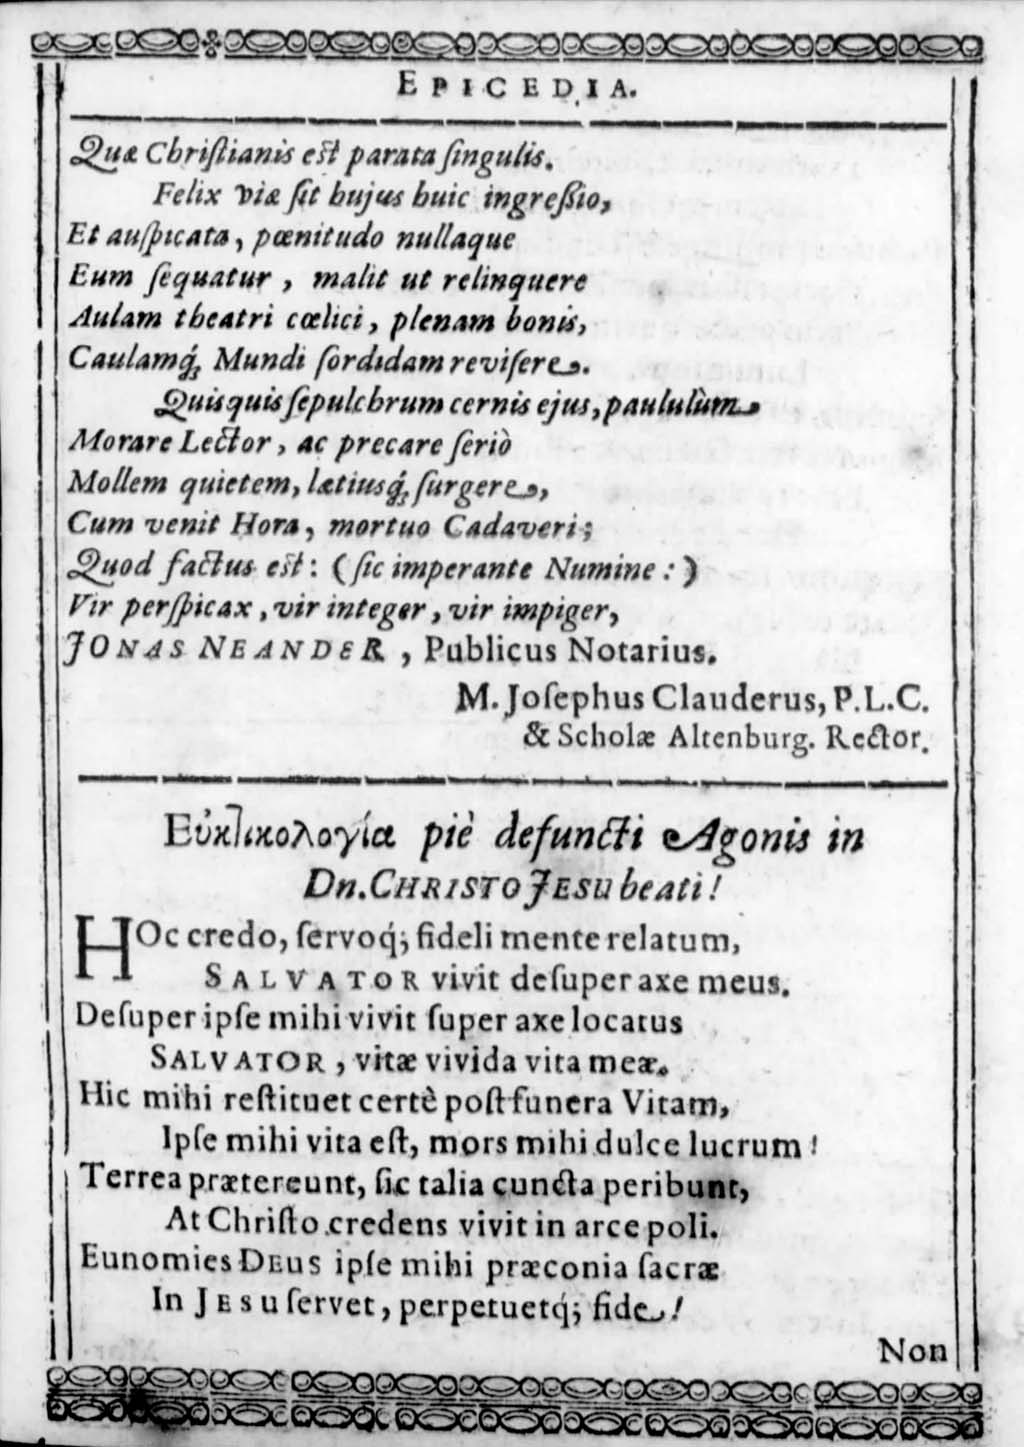 EPICEDIA.
Quæ Chriſtianis est parata ſingulis.
Felix viæ ſit hujus huic ingreſſio,
Et auſpicata, pœnitudo nullaque
Eum ſequatur, malit ut relinquere
Aulam theatri cœlici, plenam bonis,
Caulamq́; Mundi ſordidam reviſere.
Quisquis ſepulchrum cernis ejus, paululùm
Morare Lector, ac precare ſeriò
Mollem quietem, lætiusq́; ſurgere,
Cum venit Hora, mortuo Cadaveri;
Quod factus est: (ſic imperante Numine:)
Vir perſpicax, vir integer, vir impiger,
JONAS NEANDER, Publicus Notarius.
M. Joſephus Clauderus, P.L.C.
& Scholæ Altenburg. Rector.
Εὐκλικολογία piè defuncti Agonis in
Dn. CHRISTO JESU beati!
HOc credo, ſervoq́; fideli mente relatum,
SALVATOR vivit deſuper axe meus.
Deſuper ipſe mihi vivit ſuper axe locatus
SALVATOR, vitæ vivida vita meæ.
Hic mihi reſtituet certè poſt funera Vitam,
Ipſe mihi vita eſt, mors mihi dulce lucrum!
Terrea prætereunt, ſic talia cuncta peribunt,
At Chriſto credens vivit in arce poli.
Eunomies DEUS ipſe mihi præconia ſacræ
In JESU ſervet, perpetuetq́; fide!
Non